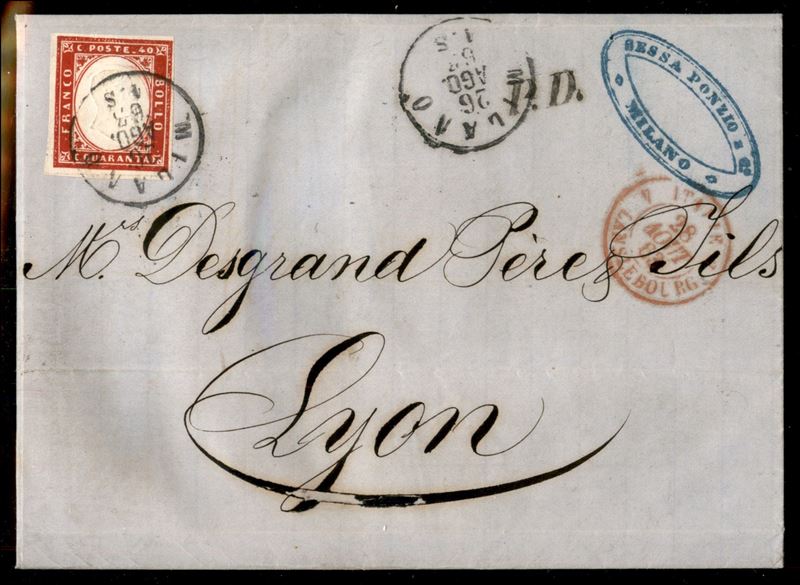 C. POSTE. 40
FRANCO
BOLLO
C. QUARANTA
MILANO
MILANO
26
AGO
P.D.
SESSA PONZIO & Cº
MILANO
ITALIE
28
AOUT
Mrs. Desgrand Pères Fils
Lyon